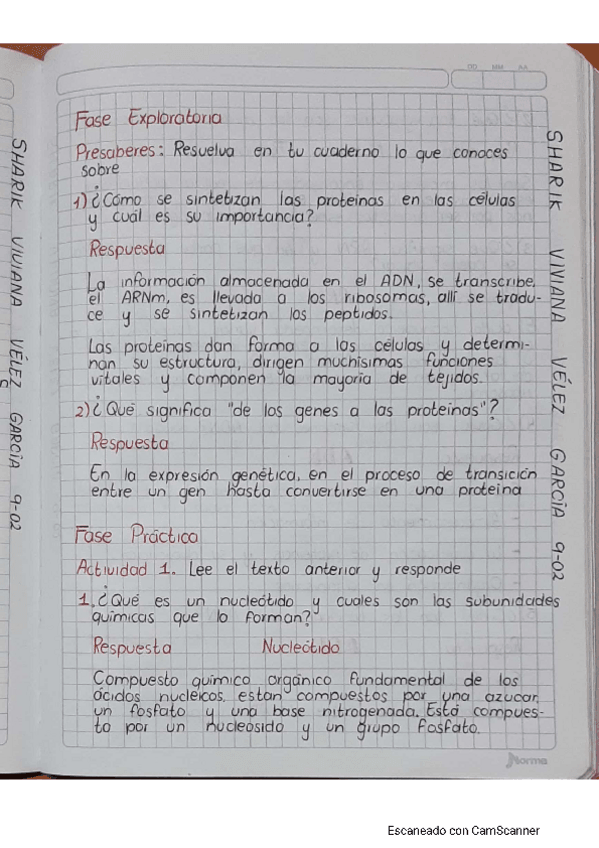 DD MM AA
Fase Exploratoria
Presaberes: Resuelva en tu cuaderno lo que conoces
sobre
1) ¿Cómo se sintetizan las proteinas en las células
y cuál es su importancia?
Respuesta
La información almacenada en el ADN, se transcribe,
el ARNm, es llevada a los ribosomas, allí se tradu-
ce y se sintetizan los peptidos.
Las proteinas dan forma a las células y determi-
nan su estructura, dirigen muchísimas funciones
vitales y componen la mayoria de tejidos.
2) ¿Qué significa "de los genes a las proteinas"?
Respuesta
En la expresión genética, en el proceso de transición
entre un gen hasta convertirse en una proteina
Fase Práctica
Actividad 1. Lee el texto anterior y responde
1. ¿Qué es un nucleótido y cuales son las subunidades
químicas que lo forman?
Respuesta Nucleótido
Compuesto químico orgánico fundamental de los
ácidos nucleicos, estan compuestos por una azucar,
un fosfato y una base nitrogenada. Está compues-
to por un nucleósido y un grupo fosfato.
SHARIK VIVIANA VÉLEZ GARCIA 9-02
SHARIK VIVIANA VÉLEZ GARCIA 9-02
Norma
Escaneado con CamScanner